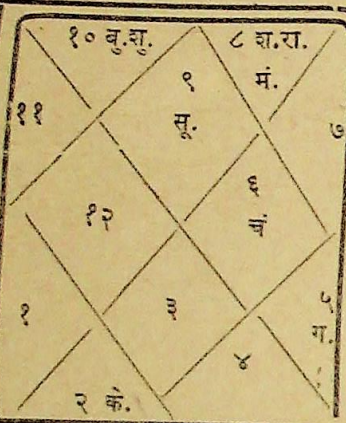 १० बु.शु.
८ श.रा.
मं.
९
सू.
११
७
६
चं
१२
१
३
५
ग.
४
२ के.